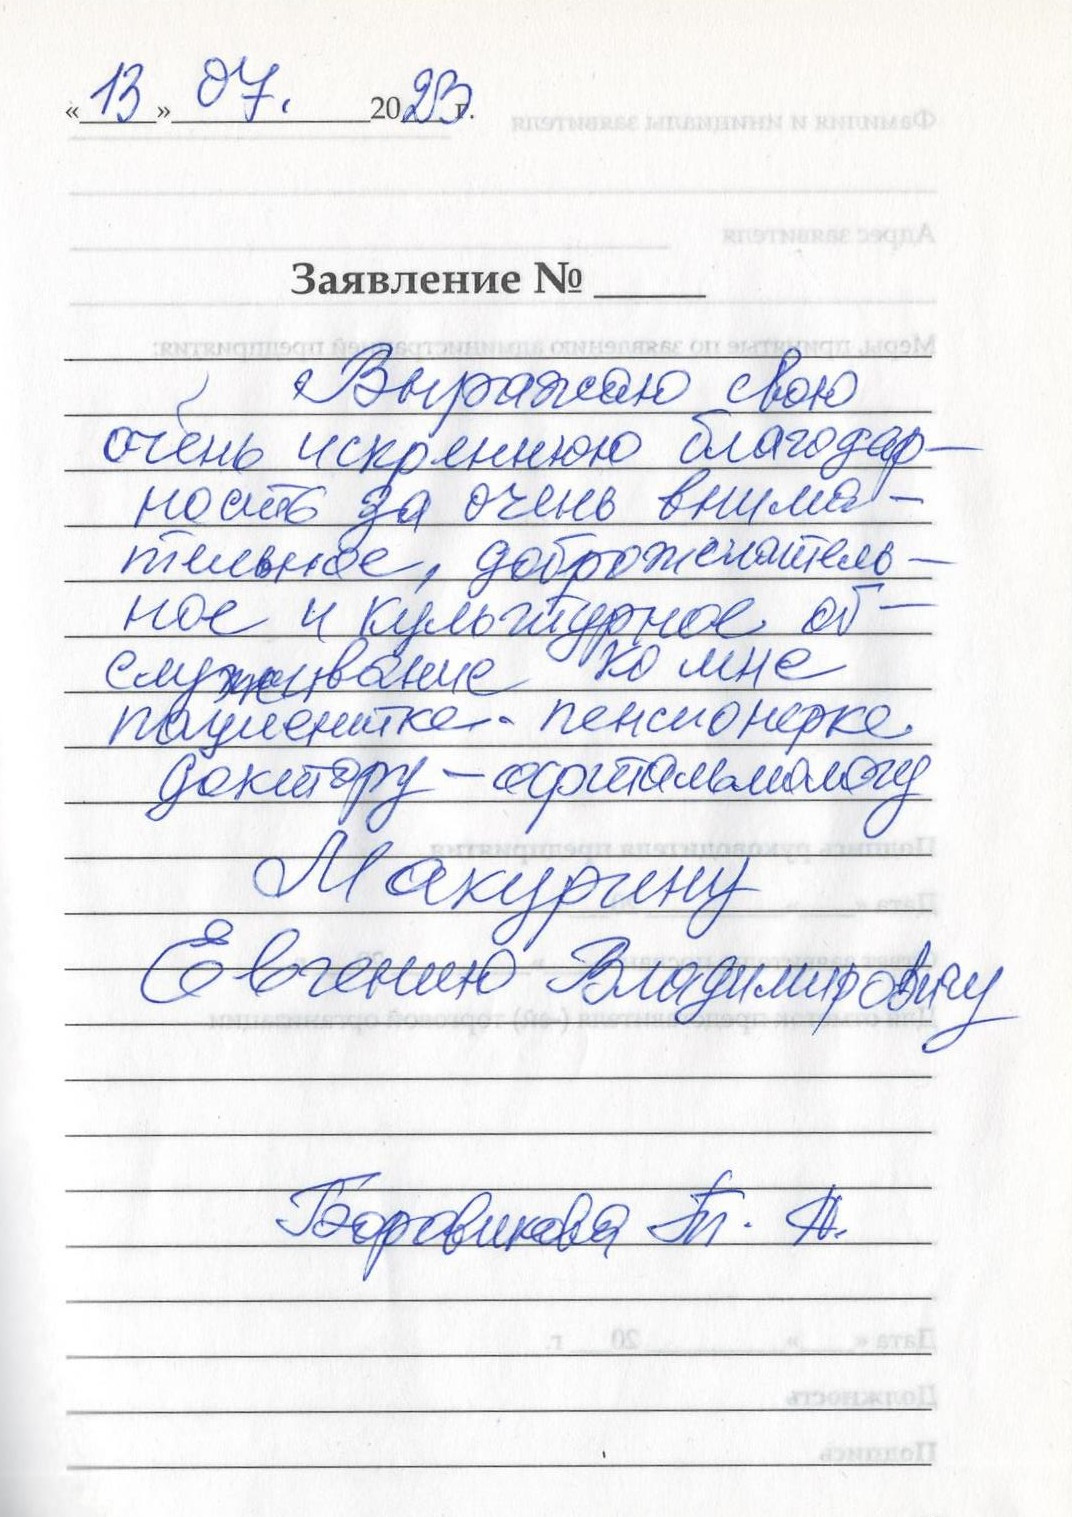 «13» 07. 2023 г.
Заявление № _____
Выражаю свою
очень искреннюю благодар-
ность за очень внима-
тельное, доброжелатель-
ное и культурное об-
служивание ко мне
пациентке - пенсионерке
доктору - офтальмологу
Макурину
Евгению Владимировичу
Боровикова Т. А.